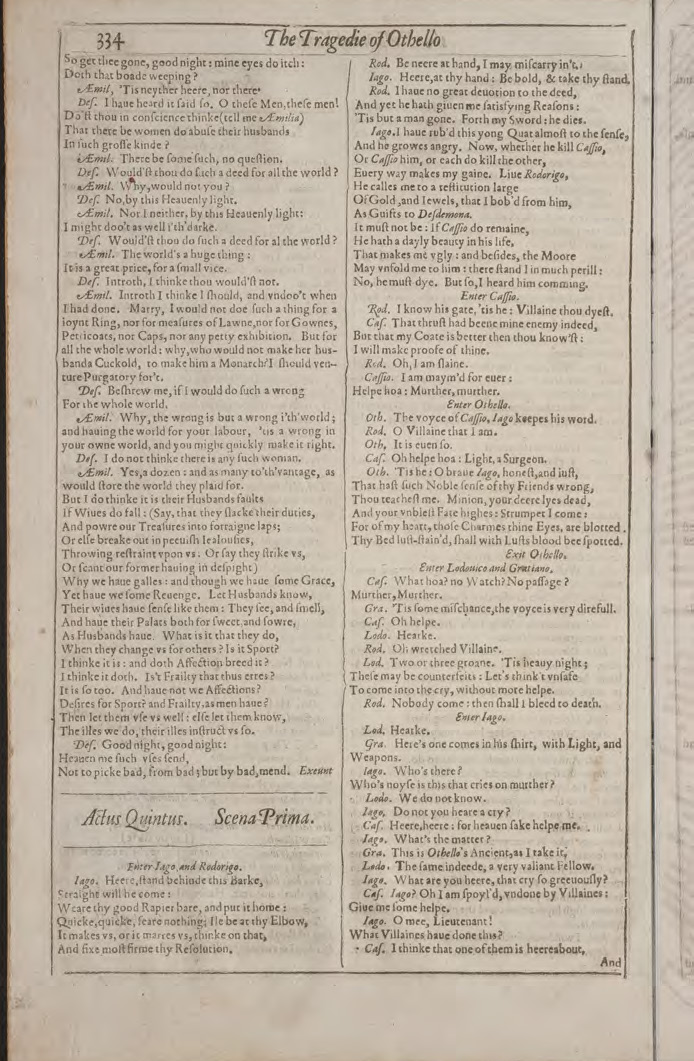 334 The Tragedie of Othello
So get thee gone, good night: mine eyes do itch:
Doth that boade weeping?
Æmil, 'Tis neyther heere, nor there.
Des. I haue heard it said so. O these Men, these men!
Do'st thou in conscience thinke (tell me Æmilia)
That there be women do abuse their husbands
In such grosse kinde?
Æmil. There be some such, no question.
Des. Would'st thou do such a deed for all the world?
Æmil. Why, would not you?
Des. No, by this Heauenly light.
Æmil. Nor I neither, by this Heauenly light:
I might doo't as well i'th'darke.
Des. Would'st thou do such a deed for al the world?
Æmil. The world's a huge thing:
It is a great price, for a small vice.
Des. Introth, I thinke thou would'st not.
Æmil. Introth I thinke I should, and vndoo't when
I had done. Marry, I would not doe such a thing for a
ioynt Ring, nor for measures of Lawne, nor for Gownes,
Petticoats, nor Caps, nor any petty exhibition. But for
all the whole world: why, who would not make her hus-
band a Cuckold, to make him a Monarch? I should ven-
ture Purgatory for't.
Des. Beshrew me, if I would do such a wrong
For the whole world.
Æmil. Why, the wrong is but a wrong i'th'world;
and hauing the world for your labour, 'tis a wrong in
your owne world, and you might quickly make it right.
Des. I do not thinke there is any such woman.
Æmil. Yes, a dozen: and as many to'th'vantage, as
would store the world they plaid for.
But I do thinke it is their Husbands faults
If Wiues do fall: (Say, that they slacke their duties,
And powre our Treasures into forraigne laps;
Or else breake out in peeuish Iealousies,
Throwing restraint vpon vs: Or say they strike vs,
Or scant our former hauing in despight)
Why we haue galles: and though we haue some Grace,
Yet haue we some Reuenge. Let Husbands know,
Their wiues haue sense like them: They see, and smell,
And haue their Palats both for sweet, and sowre,
As Husbands haue. What is it that they do,
When they change vs for others? Is it Sport?
I thinke it is: and doth Affection breed it?
I thinke it doth. Is't Frailty that thus erres?
It is so too. And haue not we Affections?
Desires for Sport? and Frailty, as men haue?
Then let them vse vs well: else let them know,
The illes we do, their illes instruct vs so.
Des. Good night, good night:
Heauen me such vses send,
Not to picke bad, from bad; but by bad, mend. Exeunt
Actus Quintus. Scena Prima.
Enter Iago, and Rodorigo.
Iago. Heere, stand behinde this Barke,
Straight will he come:
Weare thy good Rapier bare, and put it home:
Quicke, quicke, feare nothing; Ile be at thy Elbow,
It makes vs, or it marres vs, thinke on that,
And fixe most firme thy Resolution.
Rod. Be neere at hand, I may miscarry in't.
Iago. Heere, at thy hand: Be bold, & take thy stand.
Rod. I haue no great deuotion to the deed,
And yet he hath giuen me satisfying Reasons:
'Tis but a man gone. Forth my Sword: he dies.
Iago. I haue rub'd this yong Quat almost to the sense,
And he growes angry. Now, whether he kill Cassio,
Or Cassio him, or each do kill the other,
Euery way makes my gaine. Liue Rodorigo,
He calles me to a restitution large
Of Gold, and Iewels, that I bob'd from him,
As Guifts to Desdemona.
It must not be: If Cassio do remaine,
He hath a dayly beauty in his life,
That makes me vgly: and besides, the Moore
May vnfold me to him: there stand I in much perill:
No, he must dye. But so, I heard him comming.
Enter Cassio.
Rod. I know his gate, 'tis he: Villaine thou dyest.
Cas. That thrust had beene mine enemy indeed,
But that my Coate is better then thou know'st:
I will make proofe of thine.
Rod. Oh, I am slaine.
Cassio. I am maym'd for euer:
Helpe hoa: Murther, murther.
Enter Othello.
Oth. The voyce of Cassio, Iago keepes his word.
Rod. O Villaine that I am.
Oth, It is euen so.
Cas. Oh helpe hoa: Light, a Surgeon.
Oth. 'Tis he: O braue Iago, honest, and iust,
That hast such Noble sense of thy Friends wrong,
Thou teachest me. Minion, your deere lyes dead,
And your vnblest Fate highes: Strumpet I come:
For of my heart, those Charmes thine Eyes, are blotted.
Thy Bed lust-stain'd, shall with Lusts blood bee spotted.
Exit Othello.
Enter Lodouico and Gratiano.
Cas. What hoa? no Watch? No passage?
Murther, Murther.
Gra. 'Tis some mischance, the voyce is very direfull.
Cas. Oh helpe.
Lodo. Hearke.
Rod. Oh wretched Villaine.
Lod. Two or three groane. 'Tis heauy night;
These may be counterfeits: Let's think't vnsafe
To come into the cry, without more helpe.
Rod. Nobody come: then shall I bleed to death.
Enter Iago.
Lod. Hearke.
Gra. Here's one comes in his shirt, with Light, and
Weapons.
Iago. Who's there?
Who's noyse is this that cries on murther?
Lodo. We do not know.
Iago, Do not you heare a cry?
Cas. Heere, heere: for heauen sake helpe me.
Iago. What's the matter?
Gra. This is Othello's Ancient, as I take it.
Lodo. The same indeede, a very valiant Fellow.
Iago. What are you heere, that cry so greeuously?
Cas. Iago? Oh I am spoyl'd, vndone by Villaines:
Giue me some helpe.
Iago. O mee, Lieutenant!
What Villaines haue done this?
Cas. I thinke that one of them is heereabout,
And